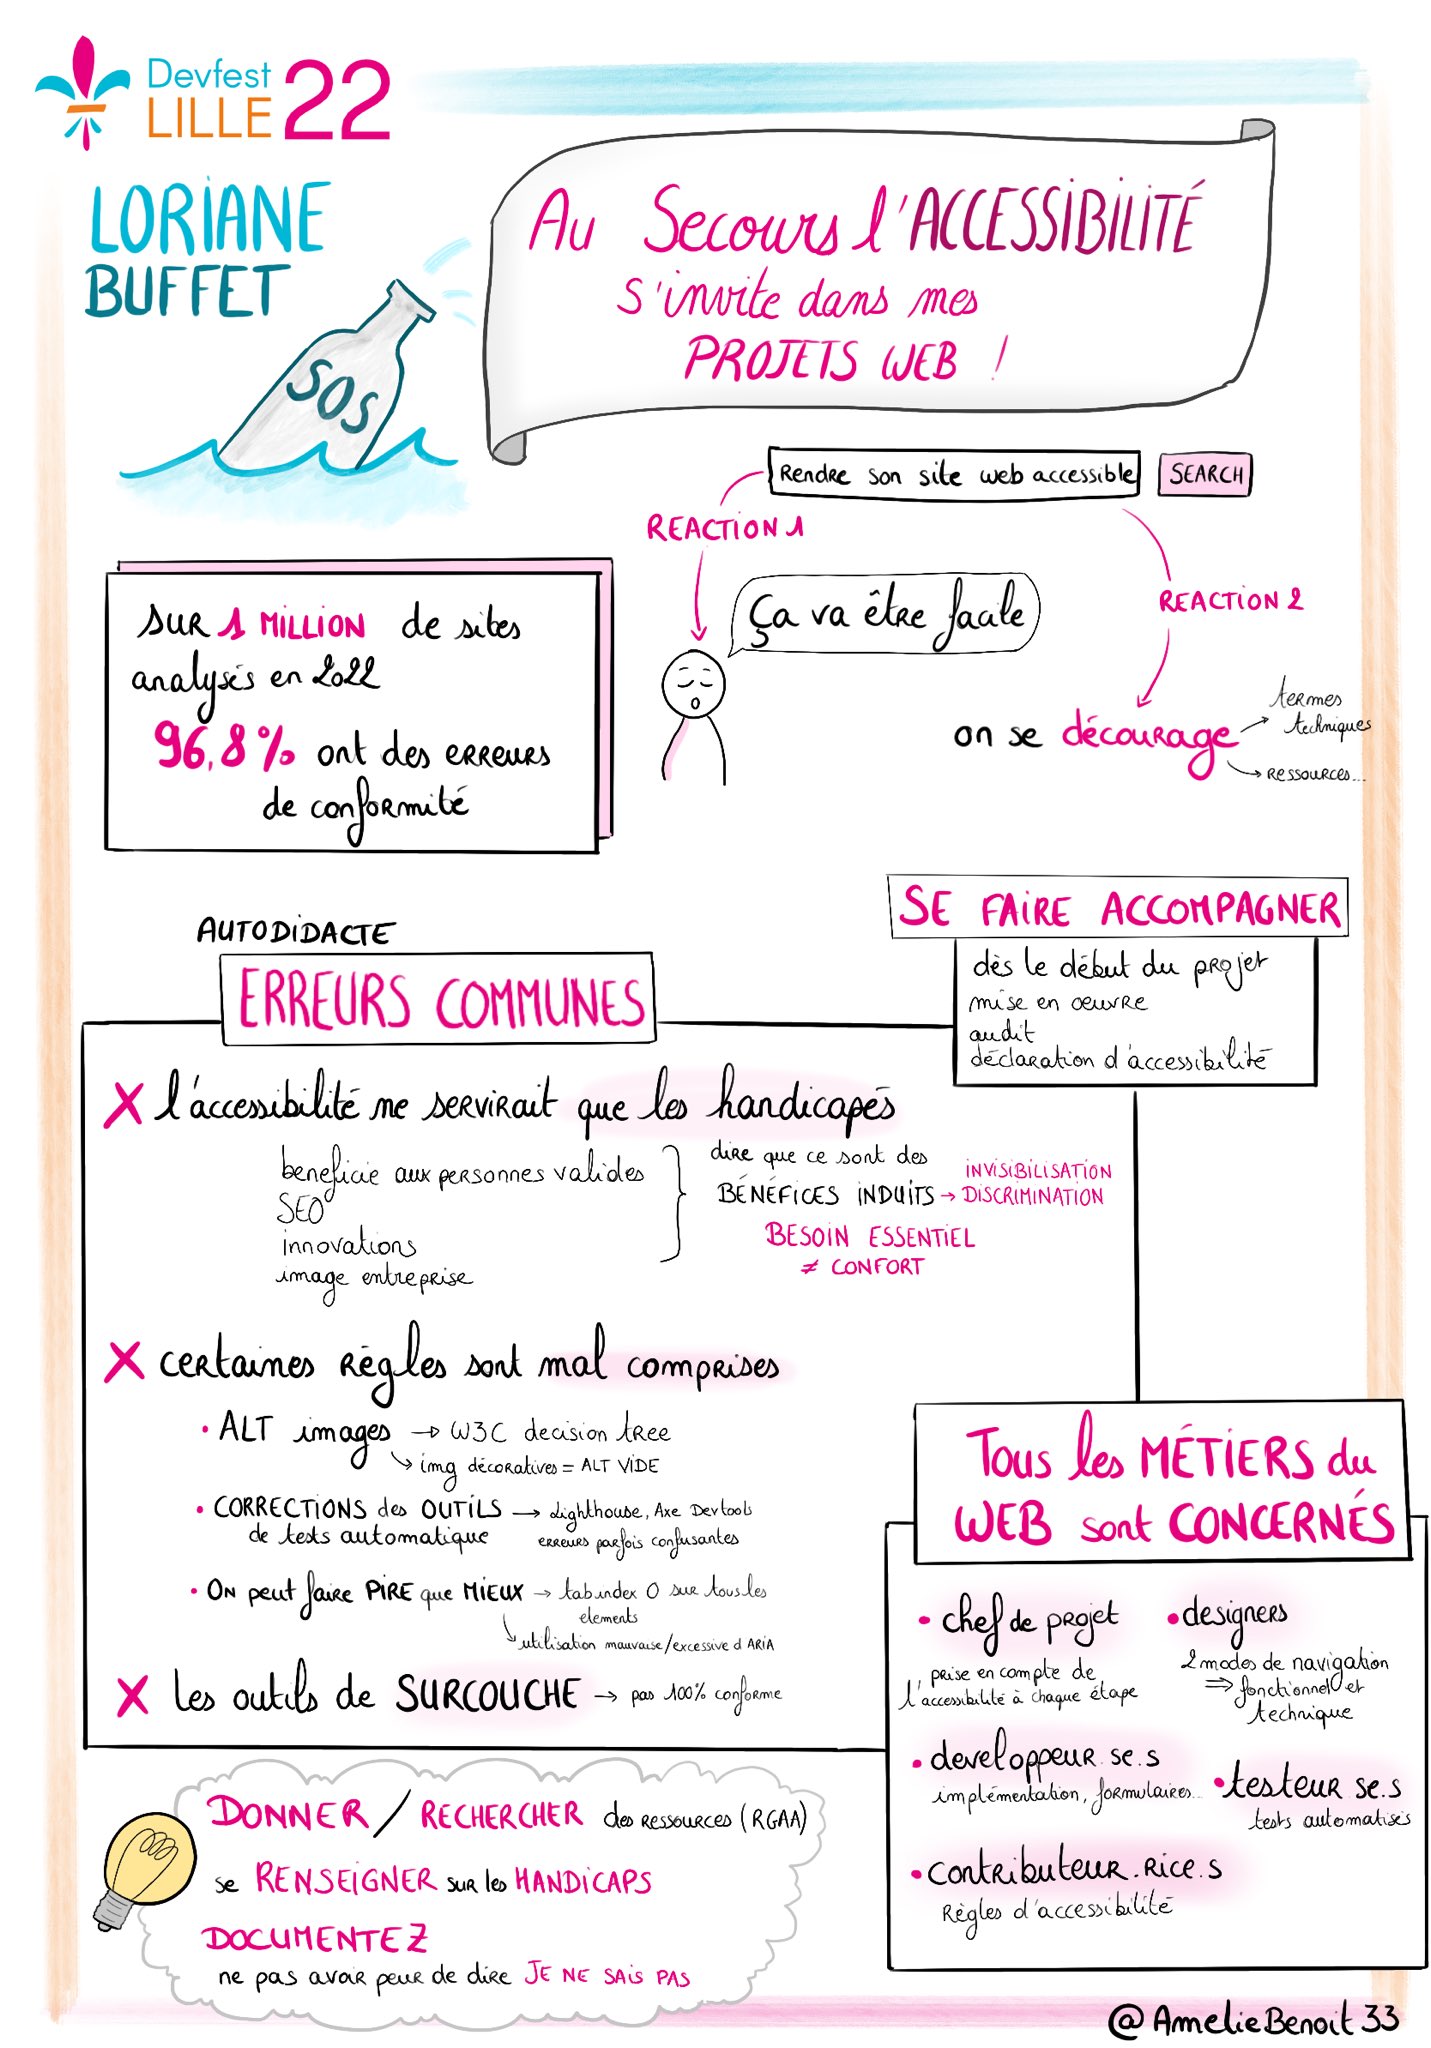 Devfest
LILLE 22
LORIANE
BUFFET
SOS
Au Secours l'ACCESSIBILITÉ
s'invite dans mes
PROJETS WEB !
Rendre son site web accessible
SEARCH
REACTION 1
Ça va être facile
REACTION 2
on se décourage
termes
techniques
ressources...
sur 1 MILLION de sites
analysés en 2022
96,8% ont des erreurs
de conformité
SE FAIRE ACCOMPAGNER
dès le début du projet
mise en oeuvre
audit
déclaration d'accessibilité
AUTODIDACTE
ERREURS COMMUNES
X l'accessibilité ne servirait que les handicapés
beneficie aux personnes valides
SEO
innovations
image entreprise
dire que ce sont des
BÉNÉFICES INDUITS → INVISIBILISATION
DISCRIMINATION
BESOIN ESSENTIEL
≠ CONFORT
X certaines règles sont mal comprises
• ALT images → W3C decision tree
↳ img décoratives = ALT VIDE
• CORRECTIONS des OUTILS → Lighthouse, Axe Devtools
de tests automatique
erreurs parfois confusantes
• On peut faire PIRE que MIEUX → tabindex 0 sur tous les
elements
↳ utilisation mauvaise/excessive d ARIA
X Les outils de SURCOUCHE → pas 100% conforme
Tous les MÉTIERS du
WEB sont CONCERNÉS
• chef de projet
prise en compte de
l'accessibilité à chaque étape
• designers
2 modes de navigation
⇒ fonctionnel et
technique
• developpeur.se.s
implémentation, formulaires...
• testeur.se.s
tests automatisés
• contributeur.rice.s
Règles d'accessibilité
DONNER / RECHERCHER des ressources (RGAA)
se RENSEIGNER sur les HANDICAPS
DOCUMENTEZ
ne pas avoir peur de dire JE NE SAIS PAS
@AmelieBenoit33